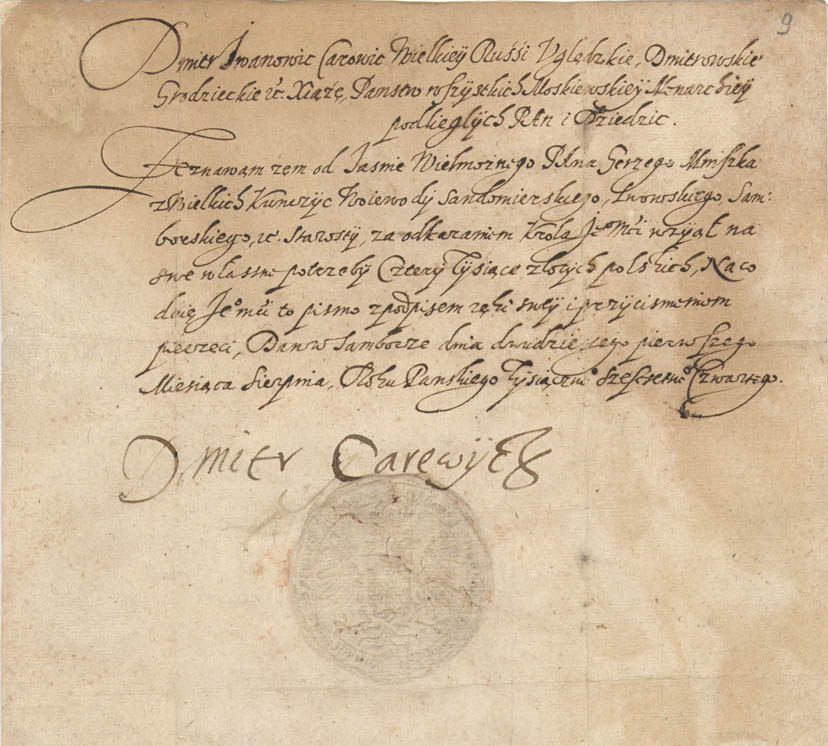 9
Dmitr Iwanowic Carowic Wielkiey Russi Uglądzkie, Dmitrowskie
Grodzieckie ić. Xiąże, Państw wszystkich Moskiewskiey Monarchiey
podległych Pan i Dziedzic.
Zeznawam zem od Jasnie Wielmożnego Pana Gerzego Mniszka
z Wielkich Kunczyc Woiewody Sandomierskiego, Lwowskiego, Sam-
borskiego, ić. Starosty, za odkazaniem Krola Je°Mći wziął na
swe własne potrzeby Cztery Tysiące złotych polskich, Na co
daię Je°mći to pismo z podpisem ręki swey i przyciśnieniem
pieczęci, Dan w Samborze dnia dwudziestego pierwszego
Miesiąca Sierpnia, Roku Pańskiego Tysiączne° Sześćsetne° Czwartego.
Dmitr Carewycz